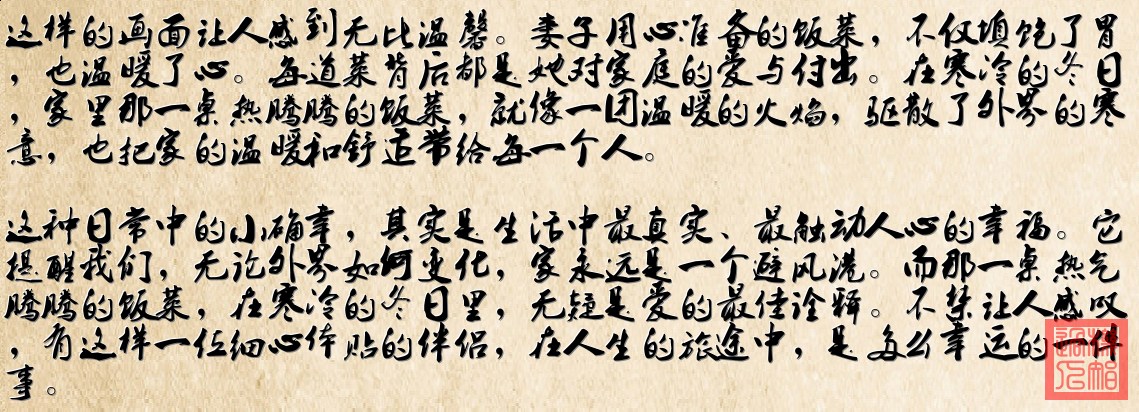 这样的画面让人感到无比温馨。妻子用心准备的饭菜，不仅填饱了胃
，也温暖了心。每道菜背后都是她对家庭的爱与付出。在寒冷的冬日
，家里那一桌热腾腾的饭菜，就像一团温暖的火焰，驱散了外界的寒
意，也把家的温暖和舒适带给每一个人。
这种日常中的小确幸，其实是生活中最真实、最触动人心的幸福。它
提醒我们，无论外界如何变化，家永远是一个避风港。而那一桌热气
腾腾的饭菜，在寒冷的冬日里，无疑是爱的最佳诠释。不禁让人感叹
，有这样一位细心体贴的伴侣，在人生的旅途中，是多么幸运的一件
事。